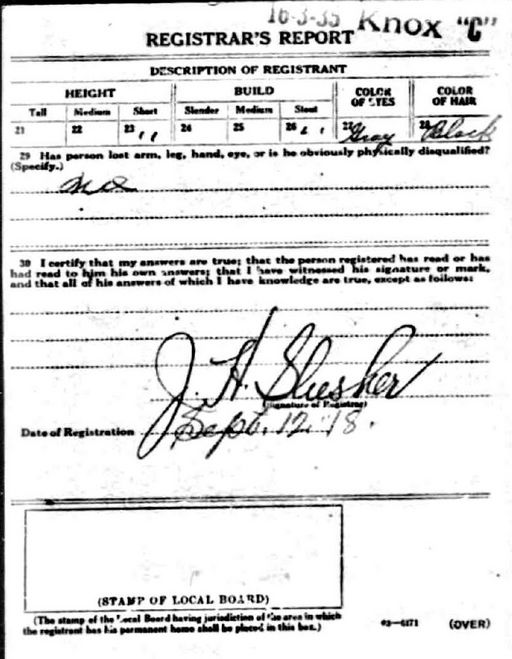 16-3-35 Knox "C"
REGISTRAR'S REPORT
DESCRIPTION OF REGISTRANT
HEIGHT BUILD COLOR OF EYES COLOR OF HAIR
Tall Medium Short Slender Medium Stout
21 22 23 " 24 25 26 " 27 Gray 28 Black
29 Has person lost arm, leg, hand, eye, or is he obviously physically disqualified?
(Specify.)
no
30 I certify that my answers are true; that the person registered has read or has
had read to him his own answers; that I have witnessed his signature or mark,
and that all of his answers of which I have knowledge are true, except as follows:
J. H. Slusher
(Signature of Registrar)
Date of Registration Sept. 12. 18.
(STAMP OF LOCAL BOARD)
(The stamp of the Local Board having jurisdiction of the area in which
the registrant has his permanent home shall be placed in this box.)
03—6171 (OVER)